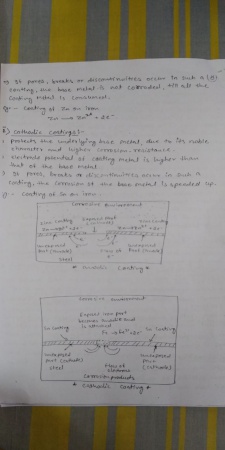 If pores, breaks or discontinuities occur in such a
coating, the base metal is not corroded, till all the
coating metal is consumed.
eg:- coating of Zn on iron
Zn → Zn²⁺ + 2e⁻
Cathodic coatings:-
protects the underlying base metal due to its noble
character and higher corrosion resistance.
electrode potential of coating metal is higher than
that of the base metal
If pores, breaks or discontinuities occur in such a
coating, the corrosion of the base metal is speeded up.
coating of Sn on iron
Corrosive Environment
Zinc coating Exposed part (cathode) Zinc coating
Zn → Zn²⁺ + 2e⁻ Zn → Zn²⁺ + 2e⁻
Unexposed part (cathode) Flow of e⁻ Unexposed part (cathode)
Steel
* Anodic coating *
Corrosive environment
Exposed iron part
becomes anodic and
is attacked
Sn coating Fe → Fe²⁺ + 2e⁻ Sn coating
Unexposed part (cathode) Flow of electrons Unexposed part (cathode)
Steel
Corrosion products
* Cathodic coating *